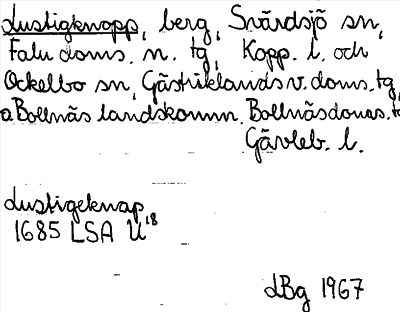 Lustigknopp, berg, Svärdsjö sn,
Falu doms. n. tg, Kopp. l. och
Ockelbo sn, Gästriklands v. doms. tg,
o Bollnäs landskomm. Bollnäs doms. t
Gävleb. l.
Lustigeknap
1685 LSA U18
LBg 1967